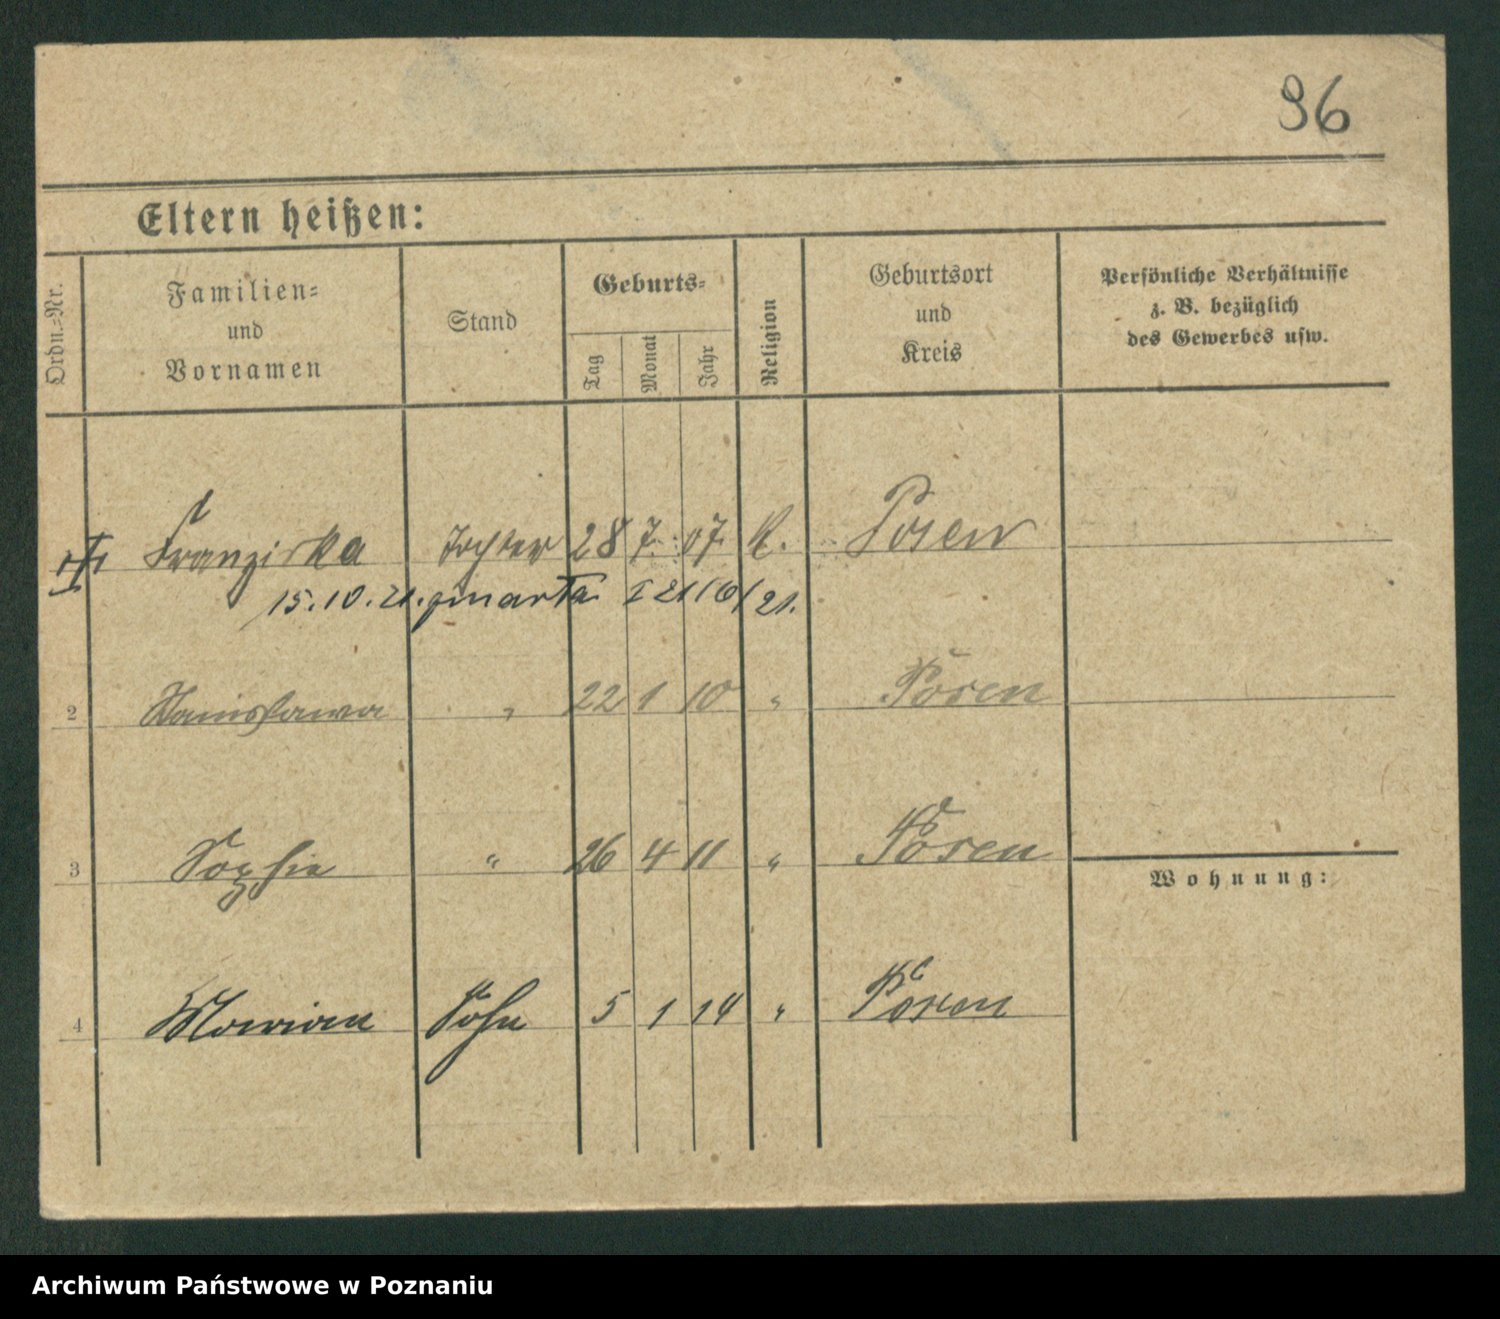 96
Eltern heißen:
Ordn.=Nr.
Familien=
und
Vornamen
Stand
Geburts=
Tag
Monat
Jahr
Religion
Geburtsort
und
Kreis
Persönliche Verhältnisse
z. B. bezüglich
des Gewerbes usw.
Franziska Tochter 28 7. 07. K. Posen
15.10.21. zmarła I 21/10/21.
2 Stanisława " 22 1 10 " Posen
3 Sophie " 26 4 11 " Posen
Wohnung:
4 Marian Sohn 5 1 14 " Posen
Archiwum Państwowe w Poznaniu